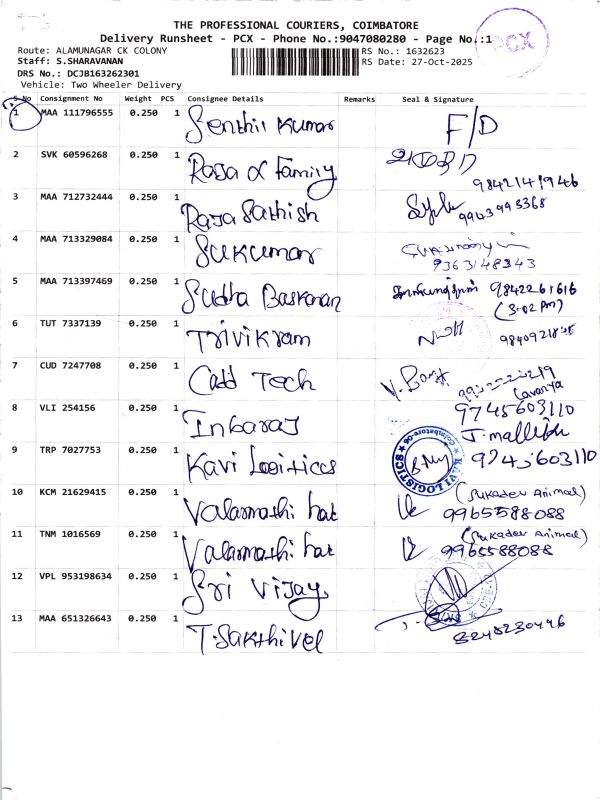 THE PROFESSIONAL COURIERS, COIMBATORE
Delivery Runsheet - PCX - Phone No.:9047080280 - Page No.:1
PCX
Route: ALAMUNAGAR CK COLONY
RS No.: 1632623
Staff: S.SHARAVANAN
RS Date: 27-Oct-2025
DRS No.: DCJB163262301
Vehicle: Two Wheeler Delivery
S No Consignment No Weight PCS Consignee Details Remarks Seal & Signature
1 MAA 111796555 0.250 1 Senthil Kumar F/D
2 SVK 60596268 0.250 1 Raja & Family
9842141946
3 MAA 712732444 0.250 1 Raja Sathish
9943993368
4 MAA 713329084 0.250 1 Sukumar
9363148343
5 MAA 713397469 0.250 1 Sudha Baskaran 9842261616
(3.02 PM)
6 TUT 7337139 0.250 1 Trivikram
7 CUD 7247708 0.250 1 Cadd Tech
Lavanya
8 VLI 254156 0.250 1 Inbaraj 9745603110
J. mallika
9 TRP 7027753 0.250 1 Kavi Logiticcs
KAVI LOGISTICS
10 KCM 21629415 0.250 1 Valarmathi hat (Sukadev Animal)
9965588088
11 TNM 1016569 0.250 1 Valarmathi hat (Sukadev Animal)
9965588088
12 VPL 953198634 0.250 1 Sri Vijay
13 MAA 651326643 0.250 1 T.Sakthivel